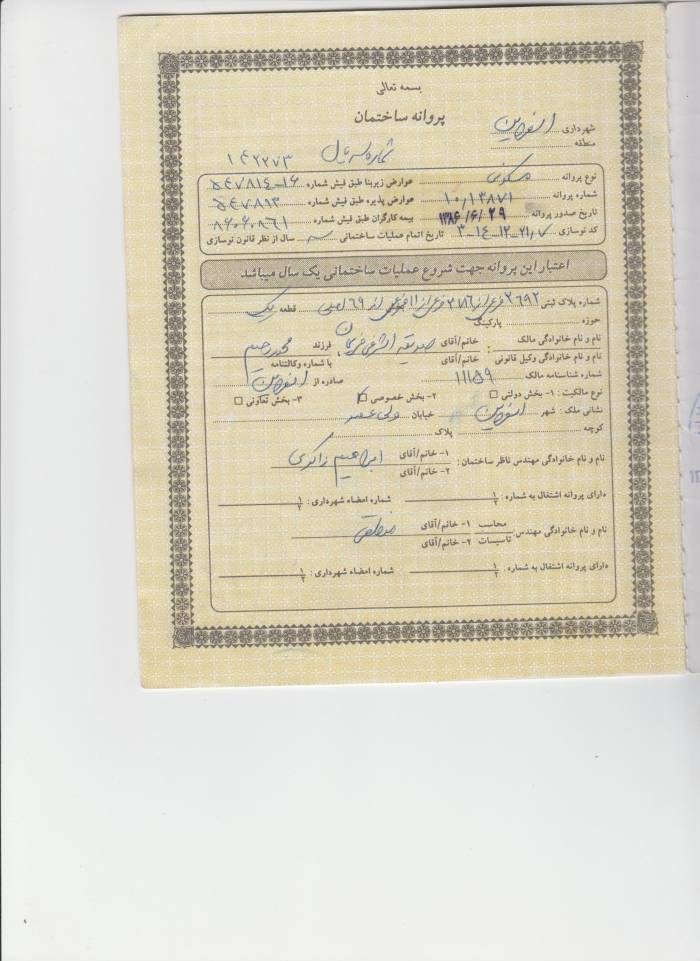 بسمه تعالی
پروانه ساختمان
شهرداری اسفراین
منطقه
شماره سریال ۱۴۲۲۷۳
نوع پروانه مسکونی عوارض زیربنا طبق فیش شماره ۱۶-۵۴۷۸۱۴
شماره پروانه ۱۰/۱۳۸۷۱ عوارض پذیره طبق فیش شماره ۵۴۷۸۱۳
تاریخ صدور پروانه ۱۳۸۶/۶/۲۹ بیمه کارگران طبق فیش شماره ۸۶۰۶۰۸۶۱
کد نوسازی ۳-۱۴-۱۲-۲۱٫۷ تاریخ اتمام عملیات ساختمانی سه سال از نظر قانون نوسازی
اعتبار این پروانه جهت شروع عملیات ساختمانی یک سال میباشد
شماره پلاک ثبتی ۲۶۹۲ فرعی از ۲۸۶ فرعی از ۱۱ فرعی از ۶۹ اصلی قطعه یک
حوزه پارکینگ
نام و نام خانوادگی مالک : خانم/آقای صدیقه اشرفی فرزند محمدرحیم
نام و نام خانوادگی وکیل قانونی : خانم/آقای با شماره وکالتنامه
شماره شناسنامه مالک ۱۱۱۵۹ صادره از اسفراین
نوع مالکیت : ۱- بخش دولتی ۲- بخش خصوصی ۳- بخش تعاونی
نشانی ملک : شهر اسفراین خیابان ولی عصر
کوچه پلاک
نام و نام خانوادگی مهندس ناظر ساختمان : ۱- خانم/آقای ابراهیم ذاکری
۲- خانم/آقای
دارای پروانه اشتغال به شماره : ۱ ۲ شماره امضاء شهرداری : ۱ ۲
نام و نام خانوادگی مهندس محاسب ۱- خانم/آقای منطقی
تاسیسات ۲- خانم/آقای
دارای پروانه اشتغال به شماره : ۱ ۲ شماره امضاء شهرداری : ۱ ۲